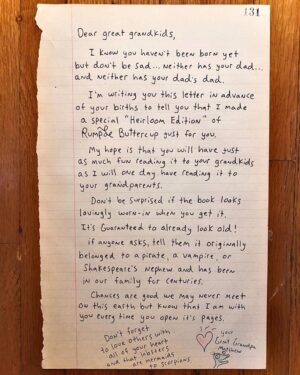 131
Dear great grandkids,
I know you haven't been born yet
but don't be sad... neither has your dad...
and neither has your dad's dad.
I'm writing you this letter in advance
of your births to tell you that I made
a special "Heirloom Edition" of
Rumple Buttercup just for you.
My hope is that you will have just
as much fun reading it to your grandkids
as I will one day have reading it to
your grandparents.
Don't be surprised if the book looks
lovingly worn-in when you get it.
It's Guaranteed to already look old!
if anyone asks, tell them it originally
belonged to a pirate, a vampire, or
Shakespeare's nephew and has been
in our family for centuries.
Chances are good we may never meet
on this earth but know that I am with
you every time you open it's pages.
Don't forget
to love others with
all of your heart
and that lobsters
are mermaids
to scorpions
your
Great Grandpa
Matthew